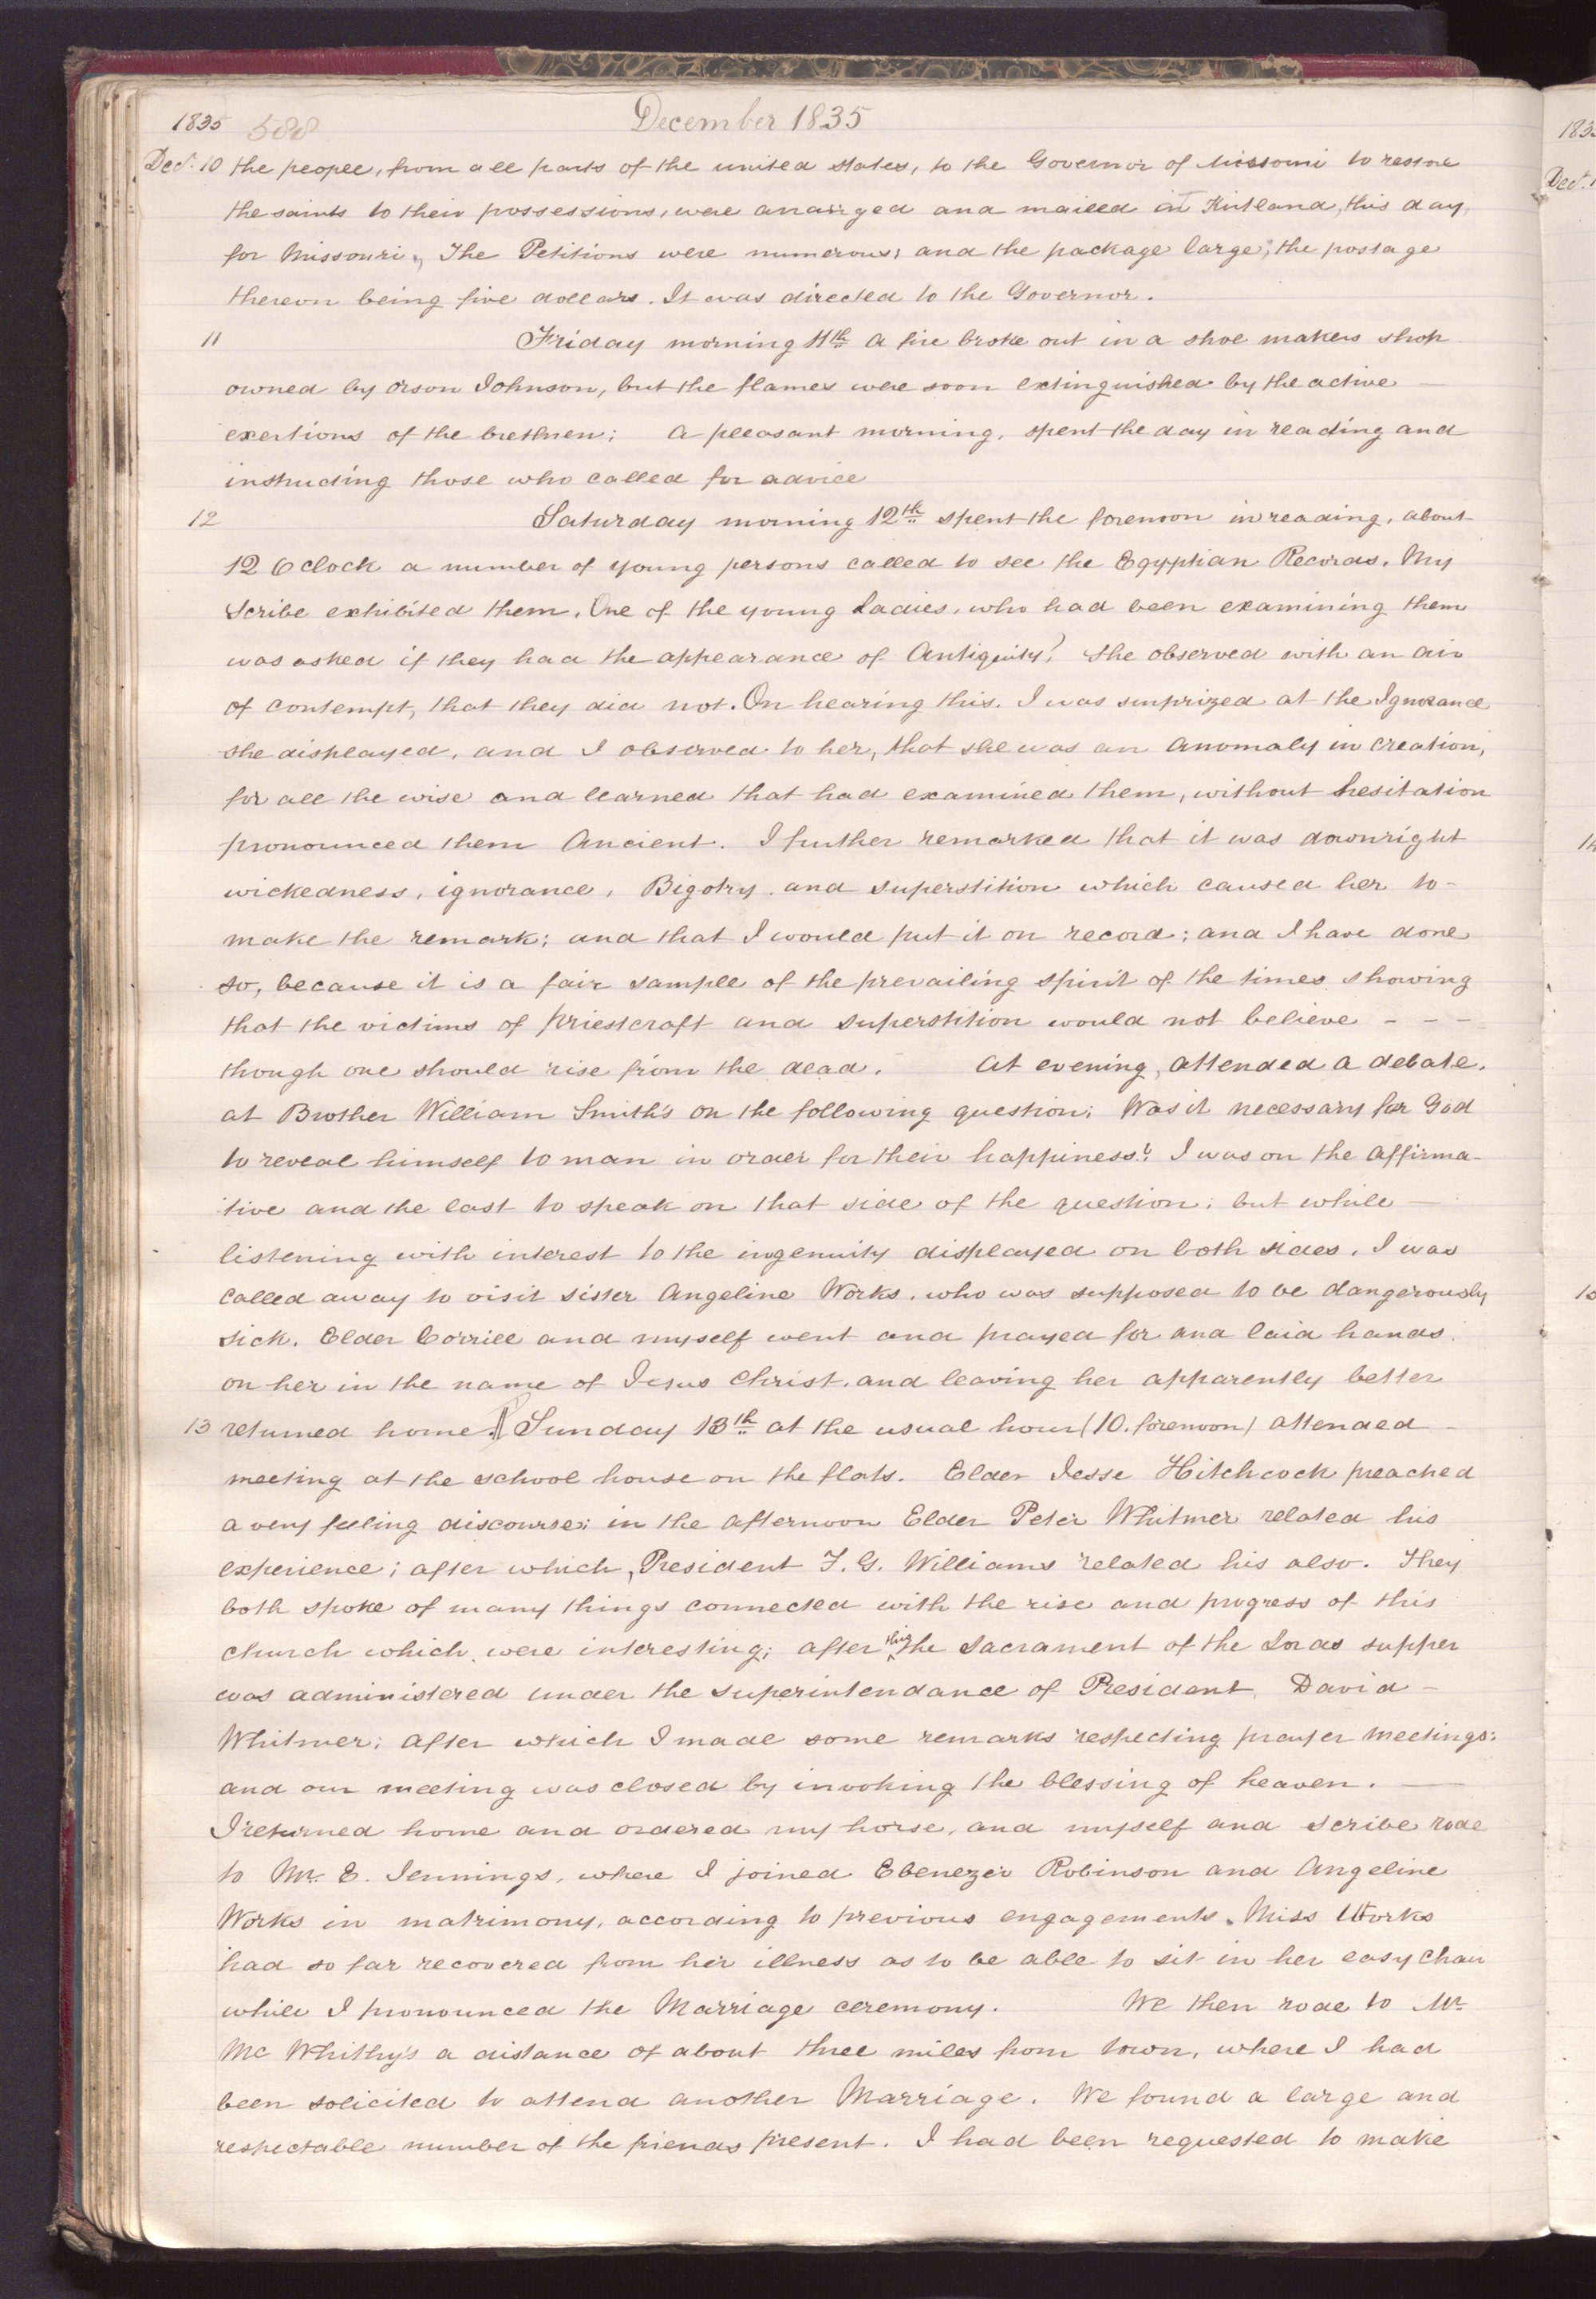 1835 588 December 1835
Dec.r 10 the people, from all parts of the united states, to the Governor of Missouri to restore
the saints to their possessions, were arranged and mailed at Kirtland, this day,
for Missouri. The Petitions were numerous; and the package large; the postage
thereon being five dollars. It was directed to the Governor.
11 Friday morning 11th a fire broke out in a shoe makers shop
owned by Orson Johnson, but the flames were soon extinguished by the active —
exertions of the brethren; a pleasant morning, spent the day in reading and
instructing those who called for advice
12 Saturday morning 12th spent the forenoon in reading, about
12 Oclock a number of young persons called to see the Egyptian Records. My
Scribe exhibited them. One of the young Ladies, who had been examining them
was asked if they had the appearance of Antiquity? She observed with an air
of contempt, that they did not. On hearing this, I was surprized at the Ignorance
she displayed, and I observed to her, that she was an Anomaly in creation,
for all the wise and learned that had examined them, without hesitation
pronounced them Ancient. I further remarked that it was downright
wickedness, ignorance, Bigotry and superstition which caused her to -
make the remark; and that I would put it on record; and I have done
so, because it is a fair sample of the prevailing spirit of the times showing
that the victims of priestcraft and superstition would not believe - - -
though one should rise from the dead. At evening, attended a debate,
at Brother William Smith's on the following question; Was it necessary for God
to reveal himself to man in order for their happiness? I was on the affirma-
tive and the last to speak on that side of the question; but while —
listening with interest to the ingenuity displayed on both sides, I was
called away to visit sister Angeline Works, who was supposed to be dangerously
sick. Elder Corrill and myself went and prayed for and laid hands
on her in the name of Jesus Christ, and leaving her apparently better
13 returned home. ¶ Sunday 13th at the usual hour (10. forenoon) attended -
meeting at the school house on the flats. Elder Jesse Hitchcock preached
a very feeling discourse; in the afternoon Elder Peter Whitmer related his
experience; after which, President F. G. Williams related his also. They
both spoke of many things connected with the rise and progress of this
church which were interesting; after this the Sacrament of the Lords supper
was administered under the superintendance of President David -
Whitmer; after which I made some remarks respecting prayer meetings;
and our meeting was closed by invoking the blessing of heaven. —
I returned home and ordered my horse, and myself and Scribe rode
to Mr. E. Jennings, where I joined Ebenezer Robinson and Angeline
Works in matrimony, according to previous engagements. Miss Works
had so far recovered from her illness as to be able to sit in her easy chair
while I pronounced the Marriage ceremony. We then rode to Mr
Mc Whithy's a distance of about three miles from town, where I had
been solicited to attend another Marriage. We found a large and
respectable number of the friends present. I had been requested to make